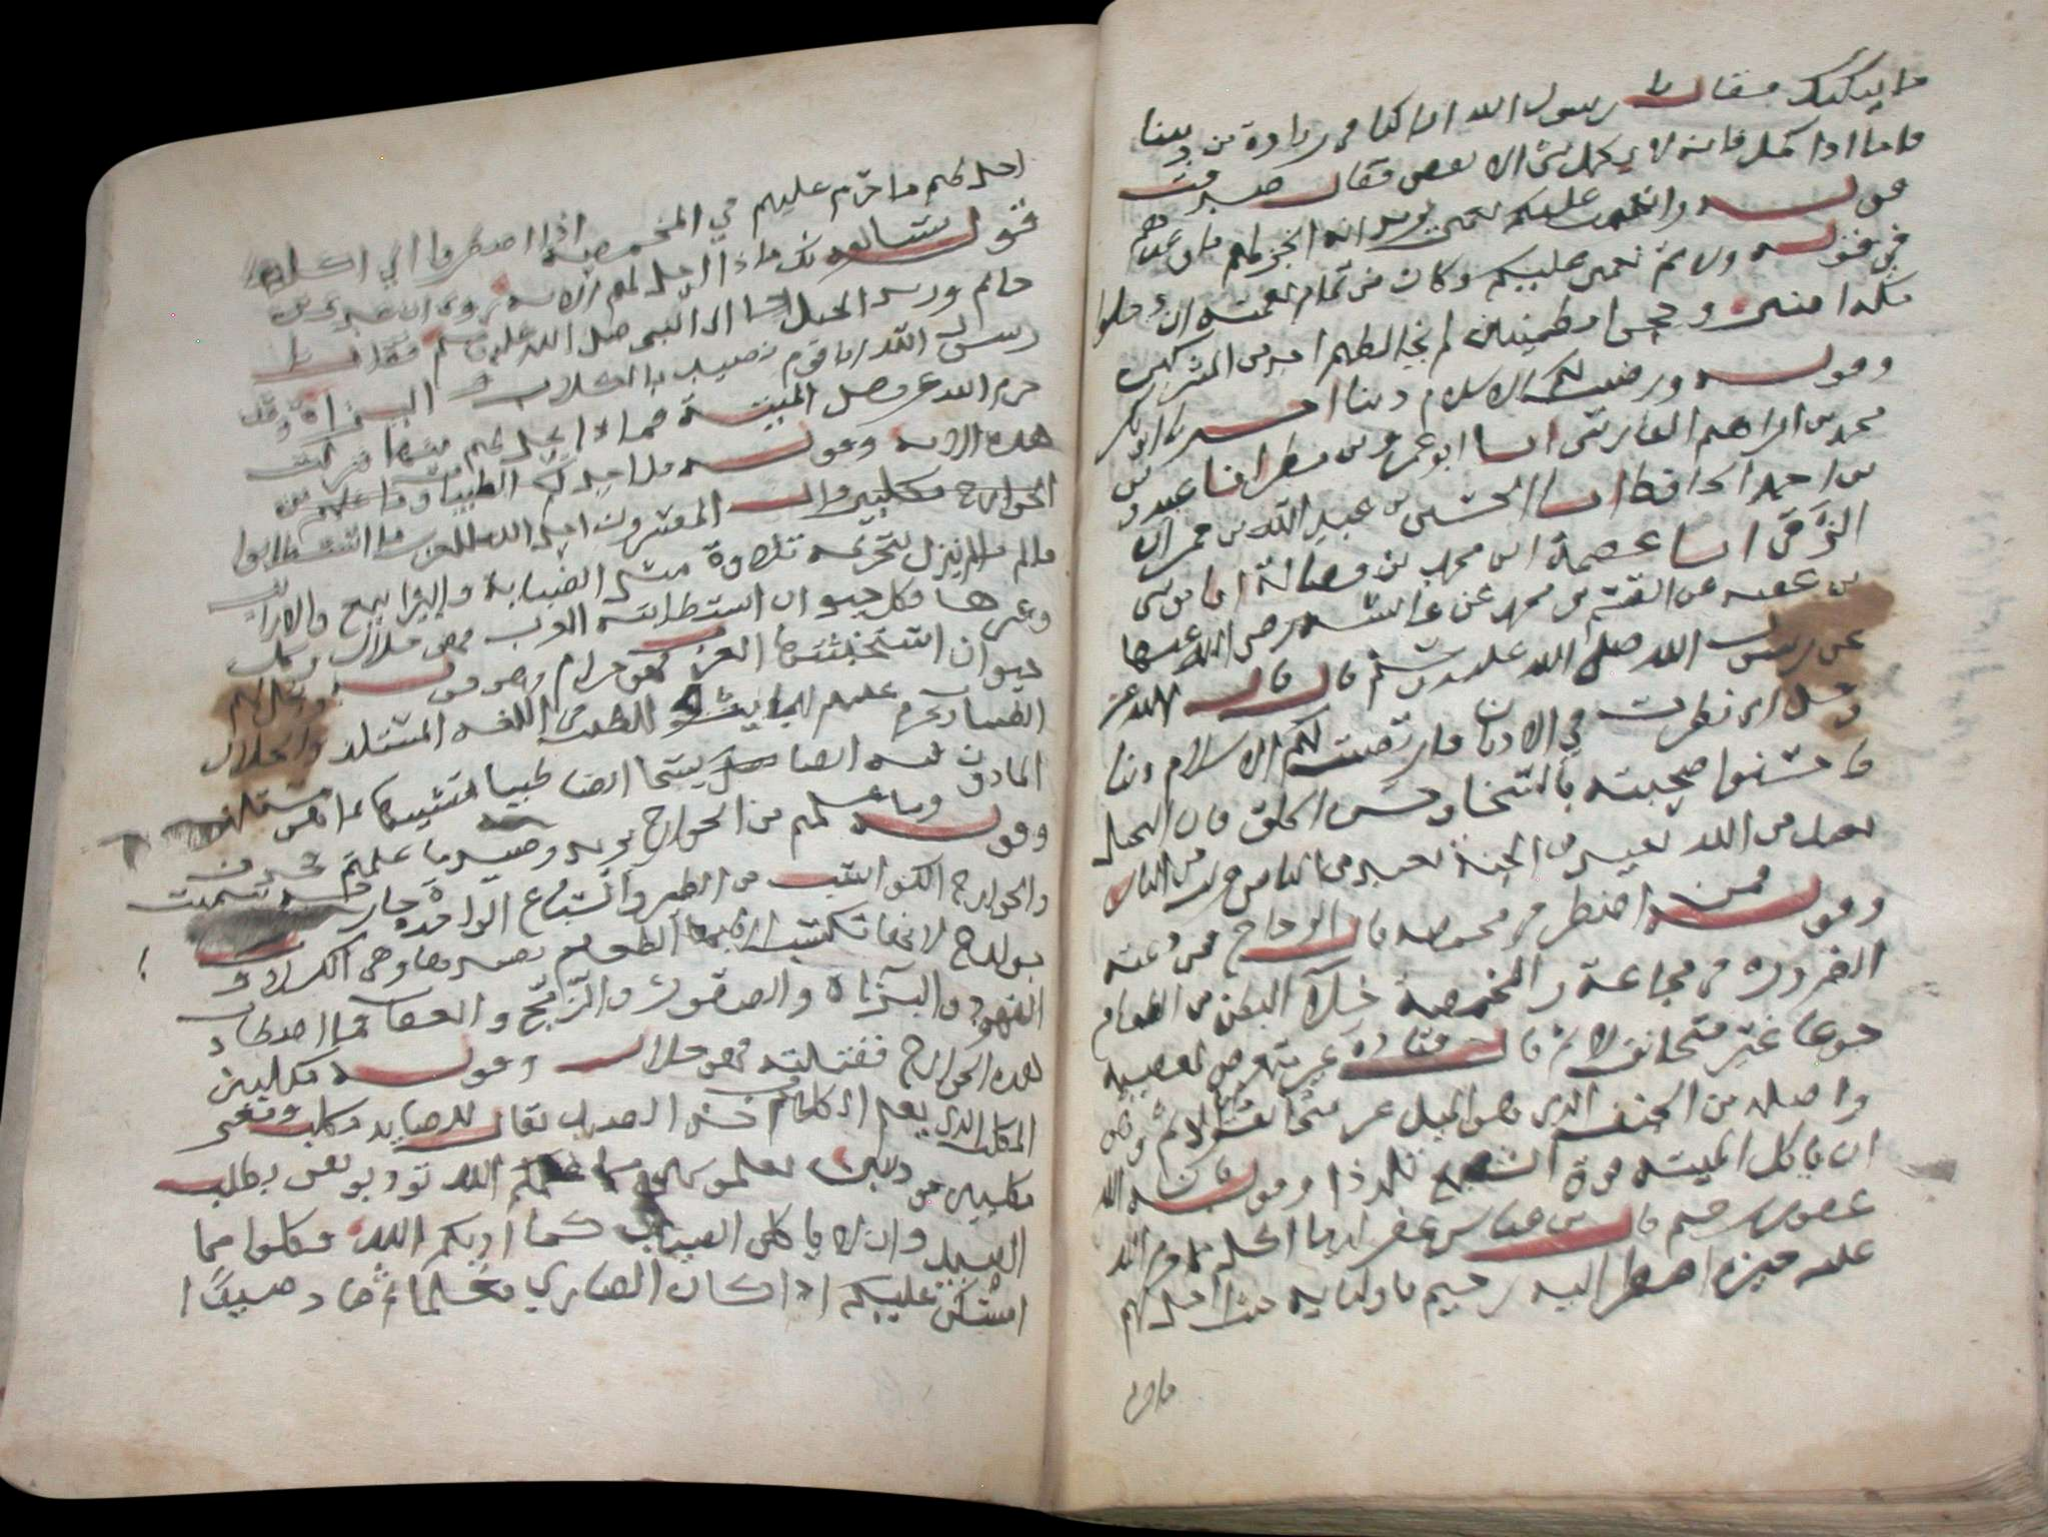 ما يبكيك فقال يا رسول الله انا كنا في زيادة من ديننا
فاما اذا كمل فانه لا يكمل شي الا نقص فقال صدقت
قوله واتممت عليكم نعمتي يريد انه انجز لهم ما وعدهم
في قوله ولاتم نعمتي عليكم وكان من تمام نعمته ان دخلوا
مكه امنين وحجوا مطمئنين لم يخالطهم احد من المشركين
وقوله ورضيت لكم الاسلام دينا اخبرنا ابو بكر
محمد بن ابراهيم الفارسي انا ابو عمرو بن مطر انا
بن احمد الحافظ انا الحسين بن عبيد الله بن حمران
الرقي انا عصمة ابن محمد بن فضالة انا موسى
بن عقبه عن القسم بن محمد عن عائشه رضي الله عنها
عن رسول الله صلى الله عليه وسلم قال قال الله عز
وجل اني نظرت في الاديان فارتضيت لكم الاسلام دينا
فاحسنوا صحبته بالسخا وحسن الخلق فان البخيل
بعيد من الله بعيد من الجنة بعيد من الناس قريب من النار
وقوله فمن اضطر في مخمصه قال الزجاج فمن دعته
الضروره في مجاعة والمخمصة خلاء البطن من الطعام
جوعا غير متجانف لاثم قال قتاده غير متعرض لمعصيه
واصله من الجنف الذي هو الميل غير متجانف لاثم وهو
ان ياكل الميته فوق الشبع تلذذا وقوله فان الله
غفور رحيم قال بن عباس غفر لهم ما اكلو مما حرم الله
عليه حين اضطر اليه رحيم باوليايه حيث احل لهم
ماحرم
احل لهم ما حرم عليهم في المخمصه اذا اضطروا الي اكلها
قوله يسالونك ماذا احل لهم الايه نزلت في عدي بن
حاتم وزيد الخيل اتيا الى النبي صلى الله عليه وسلم فقالا يا
رسول الله انا قوم نصيد بالكلاب و البزاة وقد
حرم الله عز وجل الميتة فماذا يحل لهم منها فنزلت
هذه الايه وقوله قل احل لكم الطيبات وما علمتم من
الجوارح مكلبين قال المفسرون احل الله للعرب ما استطابوا
مالم ينزل بتحريمه تلاوة مثل الضباب واليرابيع والارانب
وغيرها فكل حيوان استطابته العرب فهو حلال وكل
حيوان استخبثته العرب فهو حرام وهو قوله ويحل لهم
الطيبات ويحرم عليهم الخبايث والطيب في اللغه المستلذ والحلال
الماذون فيه ايضا يسما ايضا طيبا تشبيها بما هو مستلذ
وقوله وما علمتم من الجوارح يريد وصيد ما علمتم
والجوارح الكواسب من الطير والسباع الواحده جارحه سميت
جوارح لانها تكسب اربابها الطعام بصيدها وهي الكلاب و
الفهود والبزاة والصقور والزمج والعقاب فما اصطاد
بهذه الجوارح فقتلته فهو حلال وقوله مكلبين
المكلب الذي يعلم الكلاب اخذ الصيد يقال للصايد مكلب ومعنى
مكلبين مودبين تعلمونهن مما علمكم الله تودبوهن بطلب
الصيد وان لا ياكلن الصيد كما ادبكم الله فكلوا مما
امسكن عليكم اذا كان الضاري معلما ثم صاد صيدا